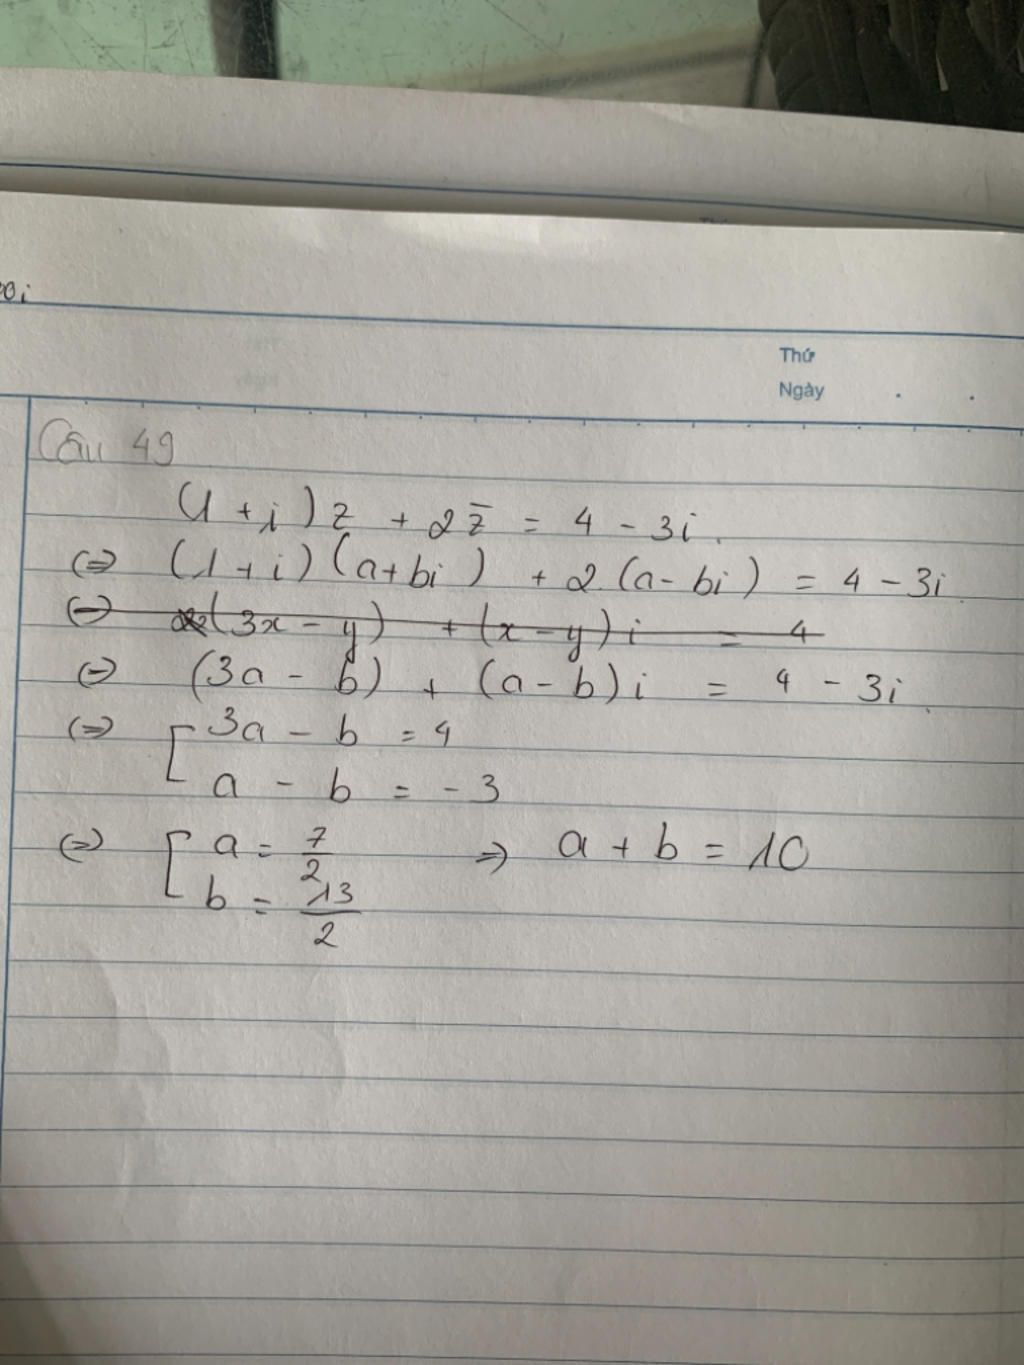 Thứ
Ngày
Câu 49
(1+i)z + 2z̄ = 4 - 3i.
(=) (1+i)(a+bi) + 2(a-bi) = 4 - 3i.
(=) (3x-y) + (x-y)i = 4
(=) (3a - b) + (a-b)i = 4 - 3i.
(=) [ 3a - b = 4
a - b = -3
(=) [ a = 7/2 => a + b = 10
b = 13/2